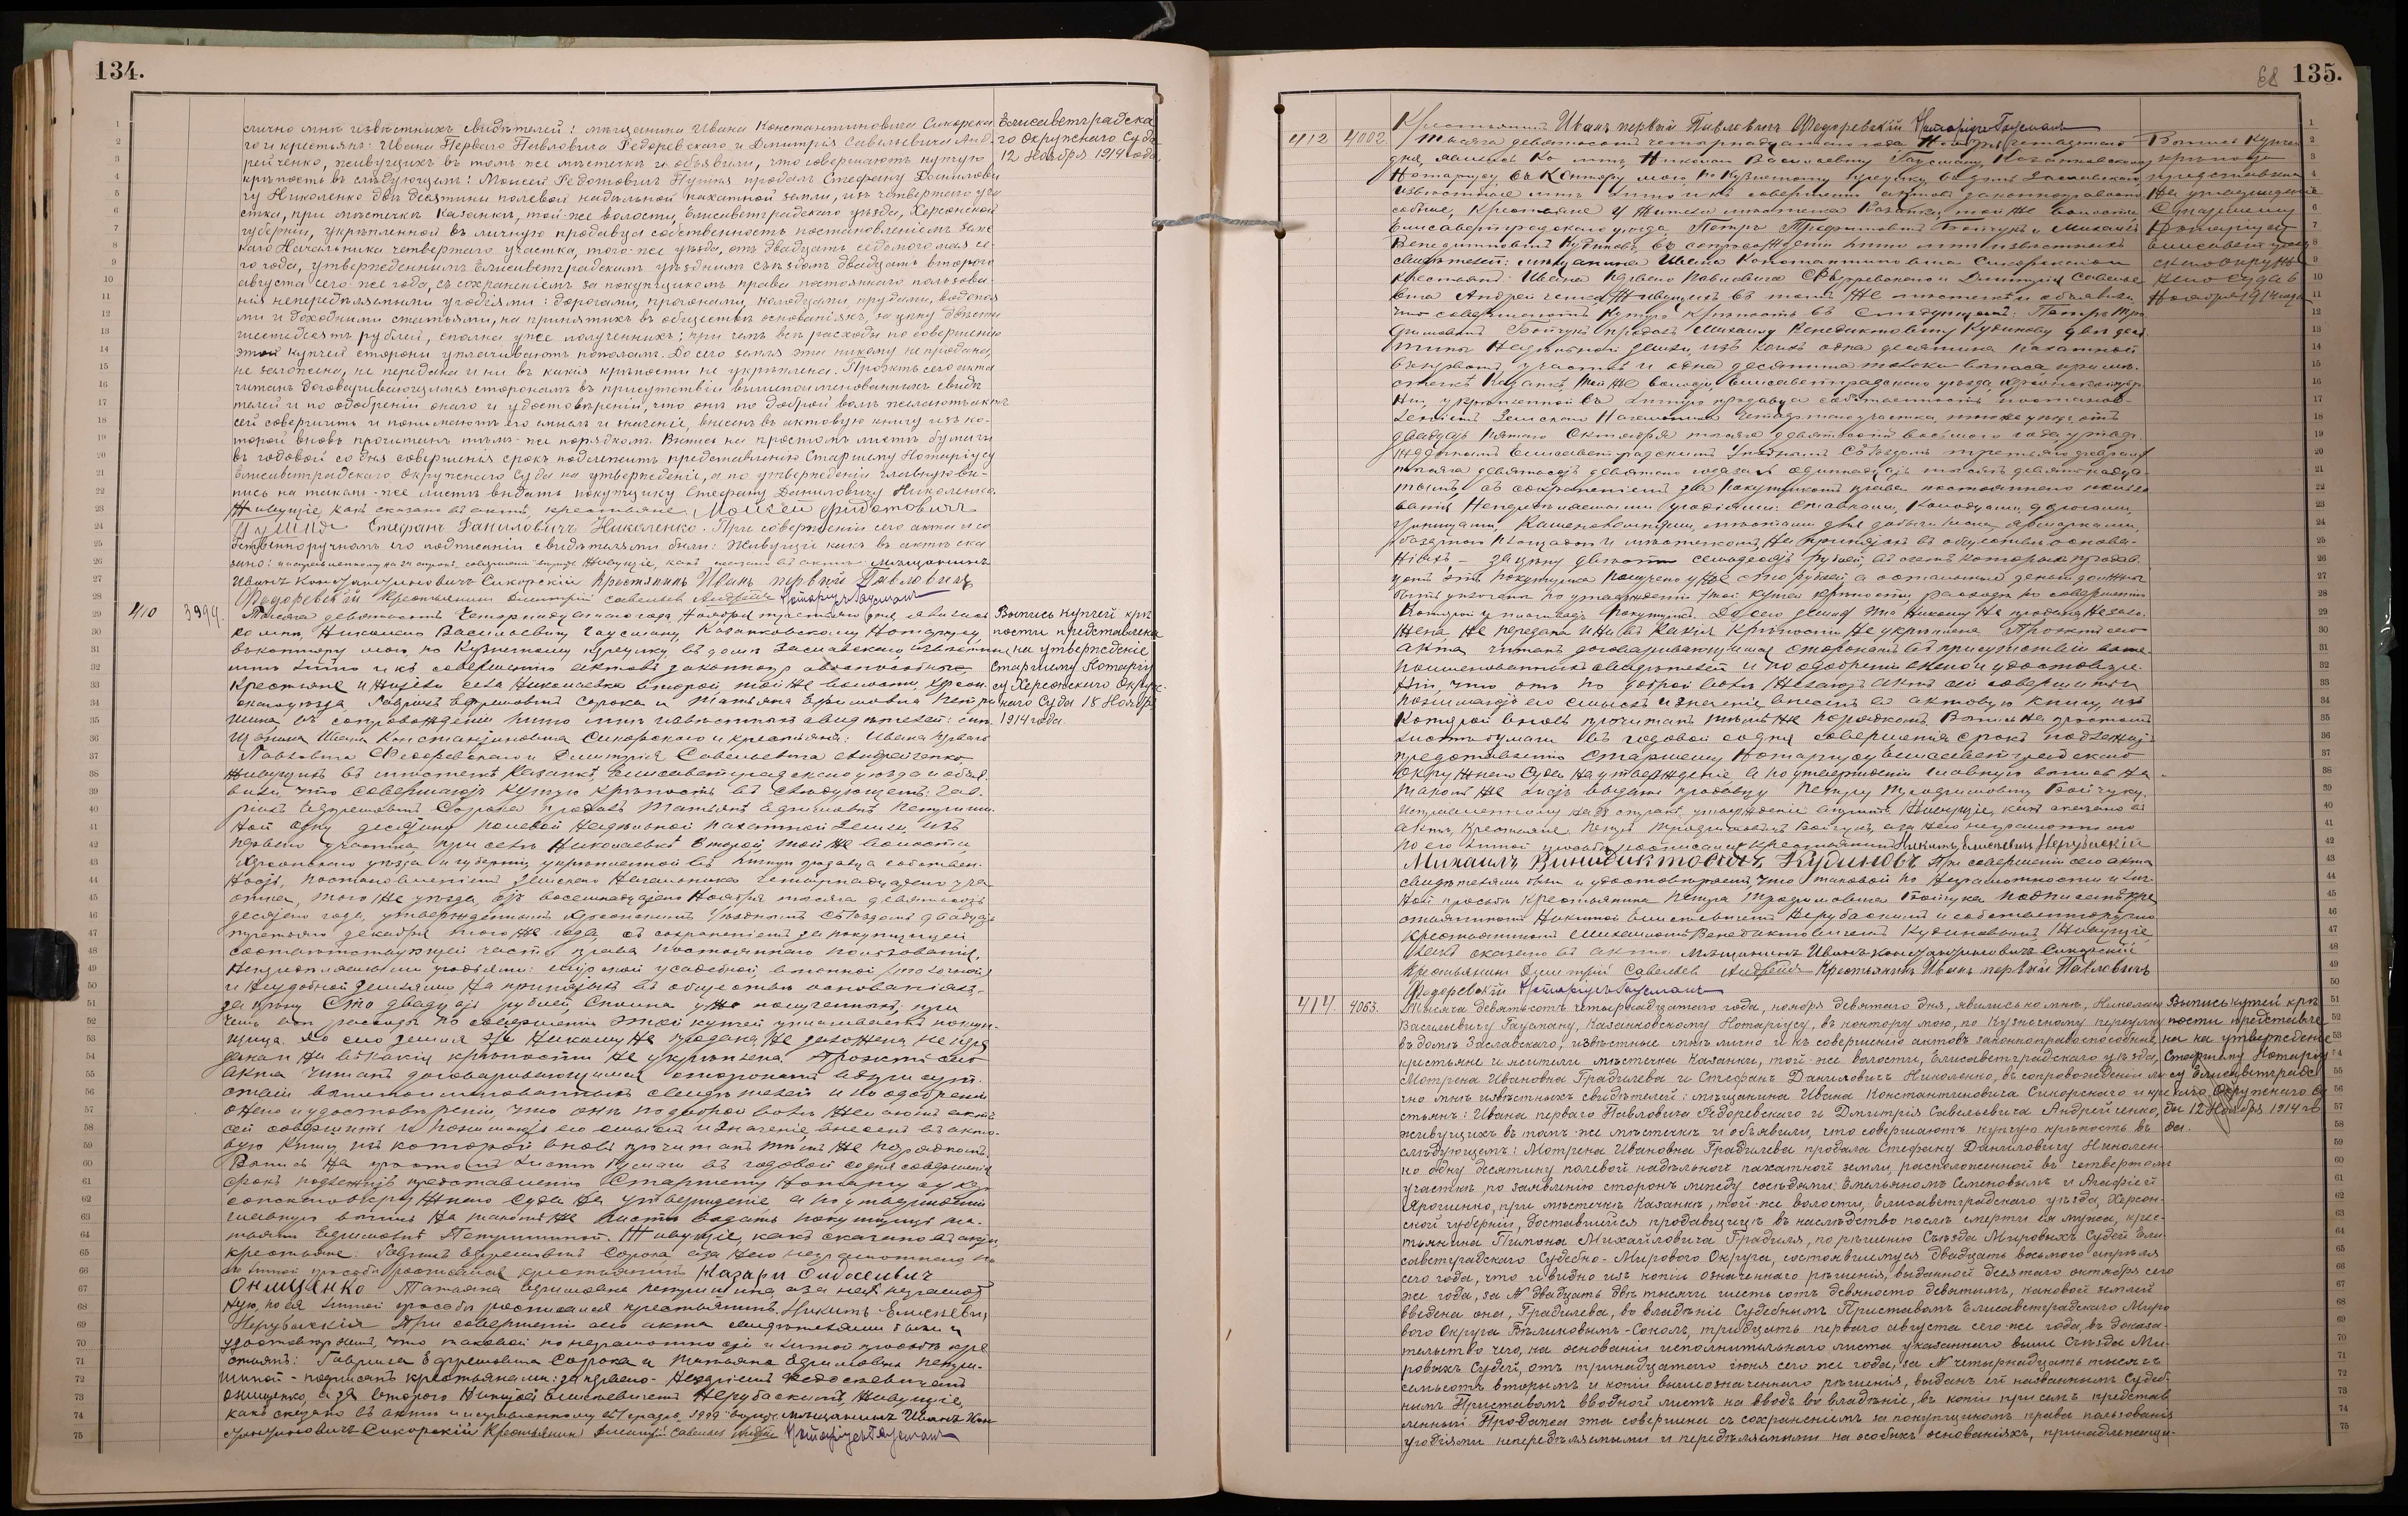 134.
слично мнѣ извѣстныхъ свидѣтелей: мѣщанина Ивана Константиновича Сикорска-
го и крестьянъ: Ивана Перваго Павловича Федоревскаго и Дмитрія Савельевича Анд-
рейченко, живущихъ въ томъ-же мѣстечкѣ и объявили, что совершаютъ купчую
крѣпость въ слѣдующемъ: Моисей Федотовичъ Пушня продалъ Стефану Данилови-
чу Николенко двѣ десятины полевой надѣльной пахатной земли, изъ четвертаго уча-
стка, при мѣстечкѣ Казанкѣ, той-же волости, Елисаветградскаго уѣзда, Херсонской
губерніи, укрѣпленной въ личную продавца собственность постановленіемъ Зем-
скаго Начальника четвертаго участка, того-же уѣзда, отъ двадцать седьмого мая се-
го года, утвержденнымъ Елисаветградскимъ уѣзднымъ съѣздомъ двадцать второго
августа сего-же года, съ сохраненіемъ за покупщикомъ права постояннаго пользова-
нія непередѣляемыми угодіями: дорогами, прогонами, колодцами, прудами, водопоя-
ми и доходными статьями, на принятыхъ въ обществѣ основаніяхъ, за цѣну двѣсти
шестьдесятъ рублей, сполна уже полученныхъ; при чемъ всѣ расходы по совершенію
этой купчей стороны уплачиваютъ пополамъ. До сего земля эта никому не продана,
не заложена, не передана и ни въ какія крѣпости не укрѣплена. Проектъ сего акта
читанъ договаривающимся сторонамъ въ присутствіи вышепоименованныхъ свидѣ-
телей и по одобреніи онаго и удостовѣреніи, что онѣ по доброй волѣ желаютъ актъ
сей совершить и понимаютъ его смыслъ и значеніе, внесенъ въ актовую книгу изъ ко-
торой вновь прочитанъ тѣмъ-же порядкомъ. Выпись на простомъ листѣ бумаги
въ годовой со дня совершенія срокъ подлежитъ представленію Старшему Нотаріусу
Елисаветградскаго Окружнаго Суда на утвержденіе, а по утвержденіи главную вы-
пись на такомъ-же листѣ выдать покупщику Стефану Даниловичу Николенко.
Живущіе, какъ сказано въ актѣ, крестьяне: Моисей Фидотович
Пушня Стефанъ Даниловичъ Николенко. При совершеніи сего акта и со
бственноручномъ его подписаніи свидѣтелями были: Живущіе какъ въ актѣ ска
зано: Живущіе, какъ сказано въ актѣ: мѣщанинъ
Иванъ Константиновичъ Сикорскій Крестьянинъ Иванъ первый Павловичъ
Федоревскій Крестьянинъ Дмитрій Савельев Андрейч Нотаріусъ Гаусманъ
Елисаветградска
го Окружнаго Суда
12 Ноября 1914 года.
410 3999. Тысяча девятьсотъ четырнадцатаго года Ноября третьяго дня, явились
ко мнѣ, Николаю Васильевичу Гаусману, Казанковскому Нотаріусу,
въ контору мою, по Кузнечному переулку, въ домѣ Заславскаго извѣстные
мнѣ лично и къ совершенію актовъ законно правоспособные
крестьяне и жители села Николаевки второй той же волости, Херсон-
скаго уѣзда, Гавріилъ Ефремовичъ Сорока и Татьяна Ефимовна Петри
шина въ сопровожденіи лично мнѣ извѣстныхъ свидѣтелей: мѣ-
щанина Ивана Константиновича Сикорскаго и крестьянъ: Ивана перваго
Павловича Федоревскаго и Дмитрія Савельевича Андрейченко,
живущихъ въ мѣстечкѣ Казанкѣ, Елисаветградскаго уѣзда и объя-
вили, что совершаютъ купчую крѣпость въ слѣдующемъ: Гав-
ріилъ Ефремовичъ Сорока продалъ Татьянѣ Ефимовнѣ Петриши-
ной одну десятину полевой надѣльной пахатной земли, изъ
перваго участка, при селѣ Николаевкѣ Второй, той же волости
Херсонскаго уѣзда и губерніи, укрѣпленной въ личную продавца собствен-
ность, постановленіемъ Земскаго Начальника четырнадцатаго уча
стка, того же уѣзда, отъ восемнадцатаго Ноября тысяча девятьсотъ
десятаго года, утвержденнымъ Херсонскимъ Уѣзднымъ Съѣздомъ двадцать
третьяго декабря того же года, съ сохраненіемъ за покупщицей
соотвѣтствующей части права постояннаго пользованія,
непередѣляемыми угодьями: мірской усадебной, выгонной, толочной
и неудобной землями на принятыхъ въ обществѣ основаніяхъ,
за цѣну Сто двадцать рублей, сполна уже полученныхъ; при
чемъ всѣ расходы по совершенію этой купчей уплачиваетъ покуп-
щица. До сего земля эта никому не продана, не заложена, не пере
дана и ни въ какія крѣпости не укрѣплена. Проектъ сего
акта читанъ договаривающимся сторонамъ въ присут-
ствіи вышепоименованныхъ свидѣтелей и по одобреніи
онаго и удостовѣреніи, что онѣ по доброй волѣ желаютъ актъ
сей совершить и понимаютъ его смыслъ и значеніе, внесенъ въ акто-
вую книгу изъ которой вновь прочитанъ тѣмъ же порядкомъ.
Выпись на простомъ листѣ бумаги въ годовой со дня совершенія
срокъ подлежитъ представленію Старшему Нотаріусу Хер-
сонскаго Окружнаго Суда на утвержденіе, а по утвержденіи
главную выпись на такомъ же листѣ выдать покупщицѣ Та-
тьянѣ Ефимовнѣ Петришиной. Живущіе, какъ сказано въ актѣ,
крестьяне: Гавріилъ Ефремовичъ Сорока, а за него неграмотнаго по
его личной просьбѣ росписался крестьянинъ Назарій Фидосеевич
Онищенко Татьяна Ефимовна Петришина, а за нея неграмот
ную, по ея личной просьбѣ росписался крестьянинъ Никита Елисѣевич
Нерубаскій При совершеніи сего акта свидѣтелями были и
удостовѣряемъ, что таковой по неграмотности и личной просьбѣ кре
стьянъ: Гавріила Ефремовича Сорока и Татьяны Ефимовны Петри-
шиной - подписанъ крестьянами: за перваго - Назаріемъ Федосеевичемъ
Онищенко, а за второго Никитой Елисѣевичемъ Нерубаскимъ, Живущіе,
какъ сказано въ актѣ мѣщанинъ Иванъ Кон
стантиновичъ Сикорскій Крестьянинъ Дмитрій Савельев Андрейч Нотаріусъ Гаусманъ
Выпись купчей крѣ
пости представлена
на утвержденіе
Старшему Нотаріу
су Херсонскаго Окруж-
наго Суда 18 Ноября
1914 года.
68 135.
Крестьянинъ Иванъ первый Павловичъ Федоревскій Нотаріусъ Гаусманъ
412 4002 Тысяча девятьсотъ четырнадцатаго года Ноября четвертаго
дня, явились ко мнѣ, Николаю Васильевичу Гаусману, Казанковскому
Нотаріусу въ контору мою по Кузнечному переулку въ домѣ Заславскаго,
извѣстные мнѣ лично и къ совершенію актовъ законноправоспо
собные, крестьяне и жители мѣстечка Казанки, той же волости
Елисаветградскаго уѣзда, Петръ Трофимовичъ Бойчукъ и Михаилъ
Венедиктовичъ Кудиновъ въ сопровожденіи лично мнѣ извѣстныхъ
свидѣтелей: мѣщанина Ивана Константиновича Сикорскаго и
крестьянъ: Ивана перваго Павловича Федоревскаго и Дмитрія Савелье
вича Андрейченко, Живущихъ въ томъ же мѣстечкѣ и объявили,
что совершаютъ купчую крѣпость въ слѣдующемъ: Петръ Тро
фимовичъ Бойчукъ продалъ Михаилу Венедиктовичу Кудинову двѣ деся
тины надѣльной земли, изъ коихъ одна десятина пахатной
въ первомъ участкѣ и одна десятина толоки выпаса при мѣ-
стечкѣ Казанкѣ, той же волости, Елисаветградскаго уѣзда, Херсонской губер
ніи, укрѣпленной въ личную продавца собственность постанов-
леніемъ Земскаго Начальника четвертаго участка, того же уѣзда, отъ
двадцать пятаго Октября тысяча девятьсотъ восьмого года, утвер-
жденнымъ Елисаветградскимъ Уѣзднымъ Съѣздомъ третьяго февраля
тысяча девятьсотъ девятаго года за № одиннадцать тысячъ девятнадца-
тымъ съ сохраненіемъ за покупщикомъ права постояннаго пользо
ванія непередѣляемыми угодіями: ставками, колодцами, дорогами,
улицами, каменоломнями, мѣстами для добычи глины, ярмарками,
базарной площадью и мѣстечкомъ, на принятыхъ въ обществѣ основа-
ніяхъ, - за цѣну двѣсти семьдесятъ рублей, въ счетъ которыхъ продав-
цомъ отъ покупщика получено уже сто рублей, а остальныя деньги должны
быть уплачены по утвержденіи этой купчей крѣпости, расходы по совершенію
которой уплачиваетъ покупщикъ. До сего земля эта никому не продана, не зало-
жена, не передана и ни въ какія крѣпости не укрѣплена. Проектъ сего
акта читанъ договаривающимся сторонамъ въ присутствіи выше
поименованныхъ свидѣтелей и по одобреніи онаго и удостовѣре-
ніи, что онѣ по доброй волѣ желаютъ актъ сей совершить и
понимаютъ его смыслъ и значеніе, внесенъ въ актовую книгу, изъ
которой вновь прочитанъ тѣмъ же порядкомъ. Выпись на простомъ
листѣ бумаги въ годовой со дня совершенія срокъ подлежитъ
представленію Старшему Нотаріусу Елисаветградскаго
Окружнаго Суда на утвержденіе, а по утвержденіи главную выпись на
таковомъ же листѣ выдать продавцу Петру Трофимовичу Бойчуку.
Живущіе, какъ сказано въ
актѣ, крестьяне: Петръ Трофимовичъ Бойчукъ, а за него неграмотнаго
по его личной просьбѣ росписался крестьянинъ Никита Елисѣевич Нерубаскій
Михаилъ Винидиктович Кудиновъ При совершеніи сего акта
свидѣтелями были и удостовѣряемъ, что таковой по неграмотности и лич-
ной просьбѣ крестьянина Петра Трофимовича Бойчука подписанъ кре
стьяниномъ Никитой Елисѣевичемъ Нерубаскимъ и собственноручно
крестьяниномъ Михаиломъ Венедиктовичемъ Кудиновымъ, Живущіе,
какъ сказано въ актѣ. Мѣщанинъ Иванъ Константиновичъ Сикорскій
Крестьянинъ Дмитрій Савельев Андрейч Крестьянинъ Иванъ первый Павловичъ
Федоревскій Нотаріусъ Гаусманъ
Выпись купчей
крѣпости
представлена
на утвержденіе
Старшему
Нотаріусу
Елисаветград
скаго Окруж
наго Суда 6
Ноября 1914 года
414. 4063. Тысяча девятьсотъ четырнадцатаго года, ноября девятаго дня, явились ко мнѣ, Николаю
Васильевичу Гаусману, Казанковскому Нотаріусу, въ контору мою, по Кузнечному переулку
въ домѣ Заславскаго, извѣстные мнѣ лично и къ совершенію актовъ законноправоспособные,
крестьяне и жители мѣстечка Казанки, той-же волости, Елисаветградскаго уѣзда,
Мотрена Ивановна Градилева и Стефанъ Даниловичъ Николенко, въ сопровожденіи ли-
чно мнѣ извѣстныхъ свидѣтелей: мѣщанина Ивана Константиновича Сикорскаго и кре-
стьянъ: Ивана перваго Павловича Федоревскаго и Дмитрія Савельевича Андрейченко,
живущихъ въ томъ-же мѣстечкѣ и объявили, что совершаютъ купчую крѣпость въ
слѣдующемъ: Мотрена Ивановна Градилева продала Стефану Даниловичу Николен-
ко одну десятину полевой надѣльной пахатной земли, расположенной въ четвертомъ
участкѣ, по заявленію сторонъ между сосѣдями: Емельяномъ Семеновымъ и Агафіей
Ярошенко, при мѣстечкѣ Казанкѣ, той-же волости, Елисаветградскаго уѣзда, Херсон-
ской губерніи, доставшейся продавщицѣ въ наслѣдство послѣ смерти ея мужа, крес-
тьянина Пимона Михайловича Градиля, по рѣшенію Съѣзда Мировыхъ Судей Ели-
саветградскаго Судебно-Мирового Округа, состоявшемуся двадцать восьмого апрѣля
сего года, что и видно изъ копіи означеннаго рѣшенія, выданной десятаго октября сего
же года, за № двадцать двѣ тысячи шестьсотъ девяносто девятымъ, каковой землей
введена она, Градилева, во владѣніе Судебнымъ Приставомъ Елисаветградскаго Миро
вого Округа Бѣликовымъ-Соколъ, тридцать перваго августа сего-же года, въ доказа-
тельство чего, на основаніи исполнительнаго листа указаннаго выше Съѣзда Ми-
ровыхъ Судей, отъ тринадцатаго іюня сего же года, за № четырнадцать тысячъ
семьсотъ вторымъ и копіи вышеозначеннаго рѣшенія, выданъ ей названнымъ Судеб-
нымъ Приставомъ вводной листъ на вводъ во владѣніе, въ копіи при семъ представ-
ленный. Продажа эта совершена съ сохраненіемъ за покупщикомъ права пользованія
угодіями непередѣляемыми и передѣляемыми на особыхъ основаніяхъ, принадлежащи-
Выпись купчей крѣ
пости представле
на на утвержденіе
Старшему Нотаріу
су Елисаветградс
каго Окружнаго Су
да 12 Ноября 1914 го
да.